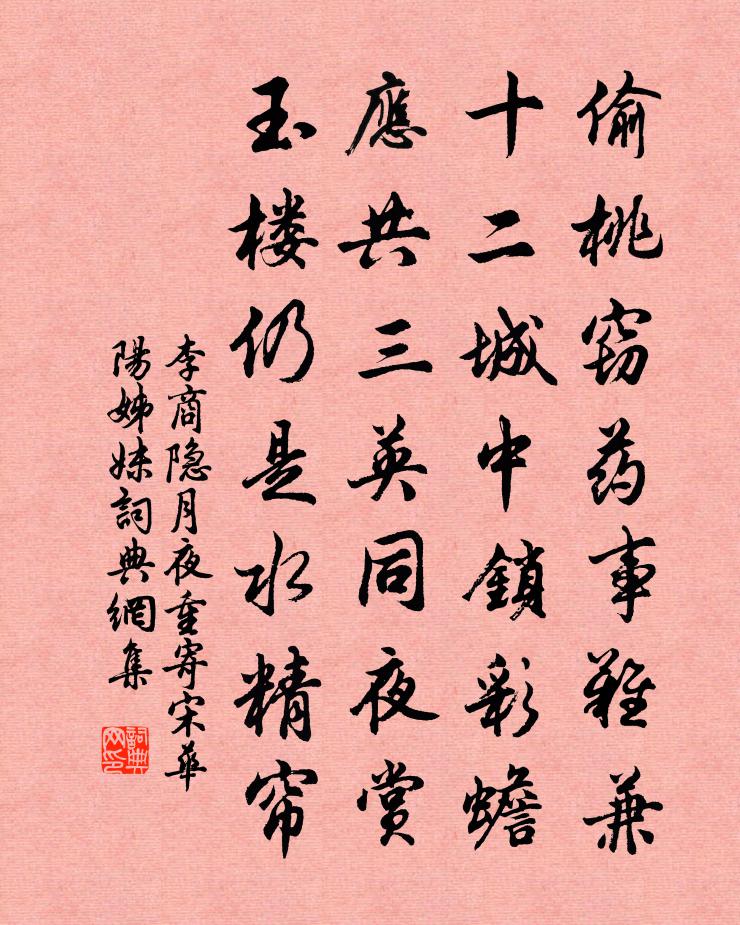 偷桃窃药事難兼
十二城中鎖彩蟾
應共三英同夜赏
玉楼仍是水精帘
李商隐月夜重寄宋華
陽姊妹詞典網集
詞典网印